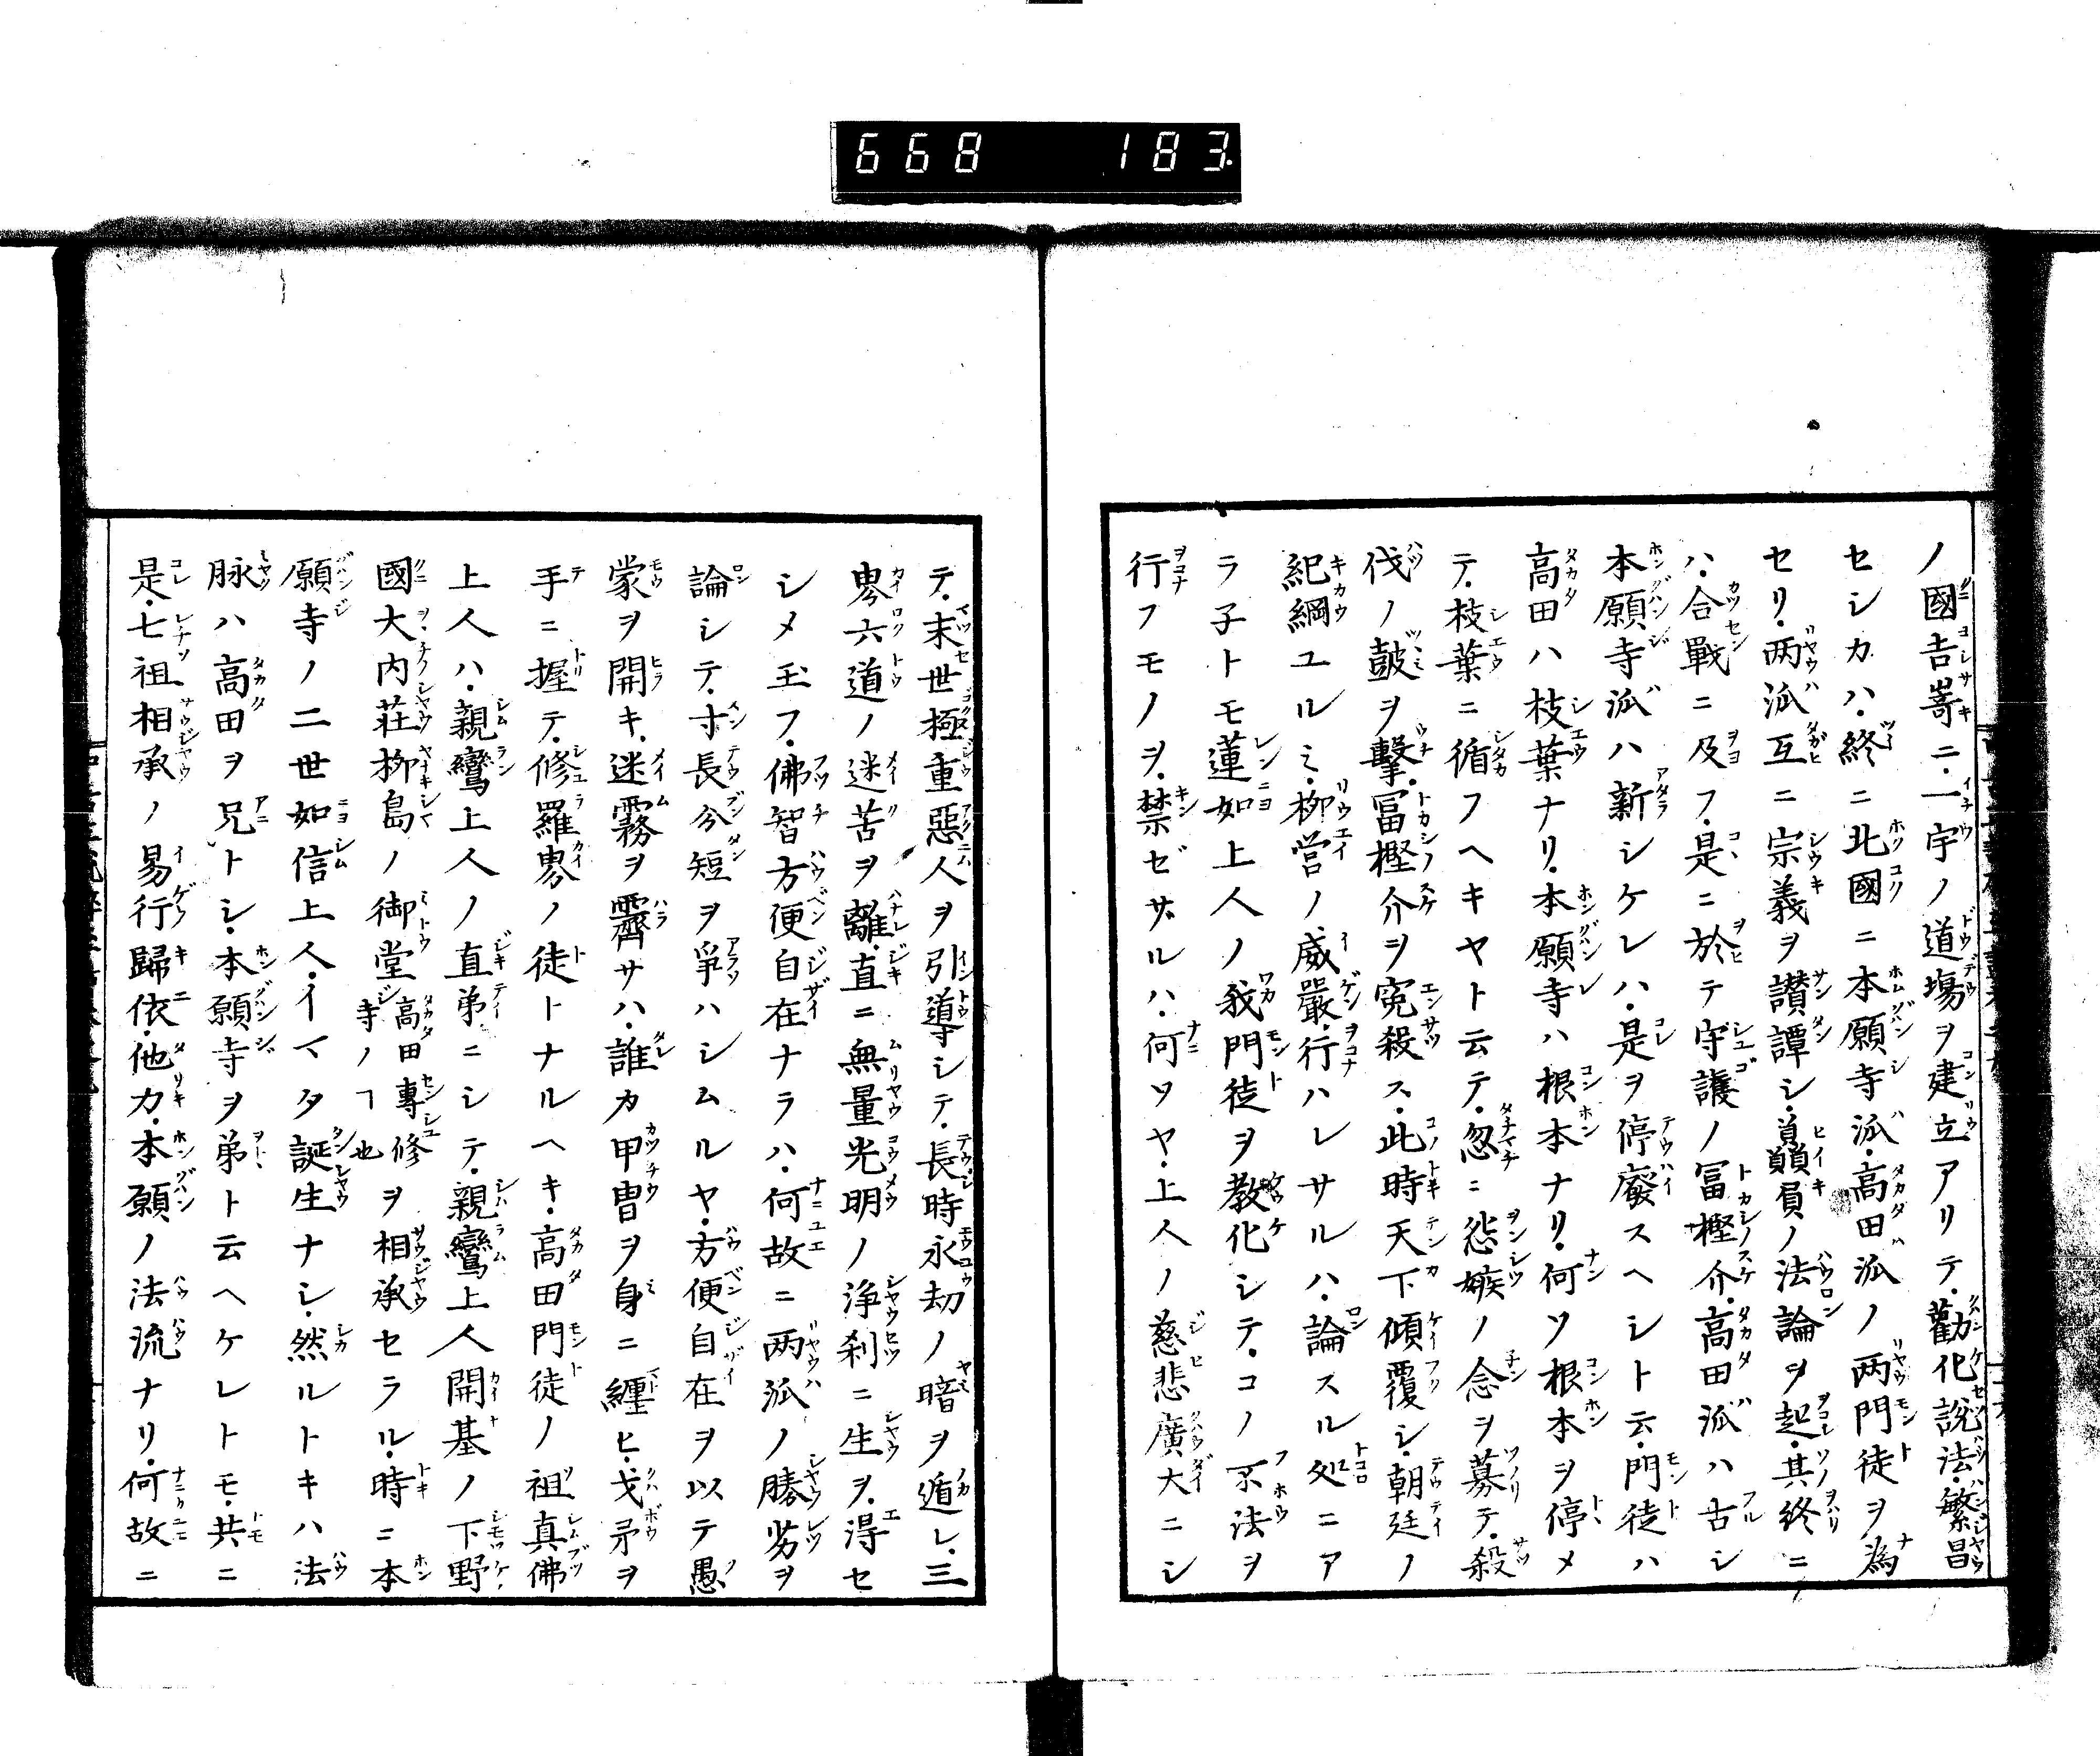 668 183.
ノ國吉嵜ニ一宇ノ道場ヲ建立アリテ勸化說法繁昌
セシカハ終ニ北國ニ本願寺派高田派ノ两門徒ヲ為
セリ两派互ニ宗義ヲ讃譚シ贔屓ノ法論ヲ起其終ニ
ハ合戰ニ及フ是ニ於テ守護ノ冨樫介高田派ハ古シ
本願寺派ハ新シケレハ是ヲ停廢スヘシト云門徒ハ
高田ハ枝葉ナリ本願寺ハ根本ナリ何ソ根本ヲ停メ
テ枝葉ニ循フヘキヤト云テ忽ニ怨嫉ノ念ヲ募テ殺
伐ノ皷ヲ擊冨樫介ヲ寃殺ス此時天下傾覆シ朝廷ノ
紀綱ユルミ柳営ノ威嚴行ハレサルハ論スル処ニア
ラ子トモ蓮如上人ノ我門徒ヲ教化シテコノ不法ヲ
行フモノヲ禁ゼザルハ何ソヤ上人ノ慈悲廣大ニシ
テ末世極重惡人ヲ引導シテ長時永劫ノ暗ヲ遁レ三
界六道ノ迷苦ヲ離直ニ無量光明ノ浄刹ニ生ヲ得セ
シメ玉フ佛智方便自在ナラハ何故ニ两派ノ勝劣ヲ
論シテ寸長分短ヲ爭ハシムルヤ方便自在ヲ以テ愚
蒙ヲ開キ迷霧ヲ霽サハ誰カ甲冑ヲ身ニ纏ヒ戈矛ヲ
手ニ握テ修羅界ノ徒トナルヘキ高田門徒ノ祖真佛
上人ハ親鸞上人ノ直弟ニシテ親鸞上人開基ノ下野
國大内莊栁島ノ御堂高田專修寺ノヿ也ヲ相承セラル時ニ本
願寺ノ二世如信上人イマタ誕生ナシ然ルトキハ法
脉ハ高田ヲ兄トシ本願寺ヲ弟ト云ヘケレトモ共ニ
是七祖相承ノ易行歸依他力本願ノ法流ナリ何故ニ